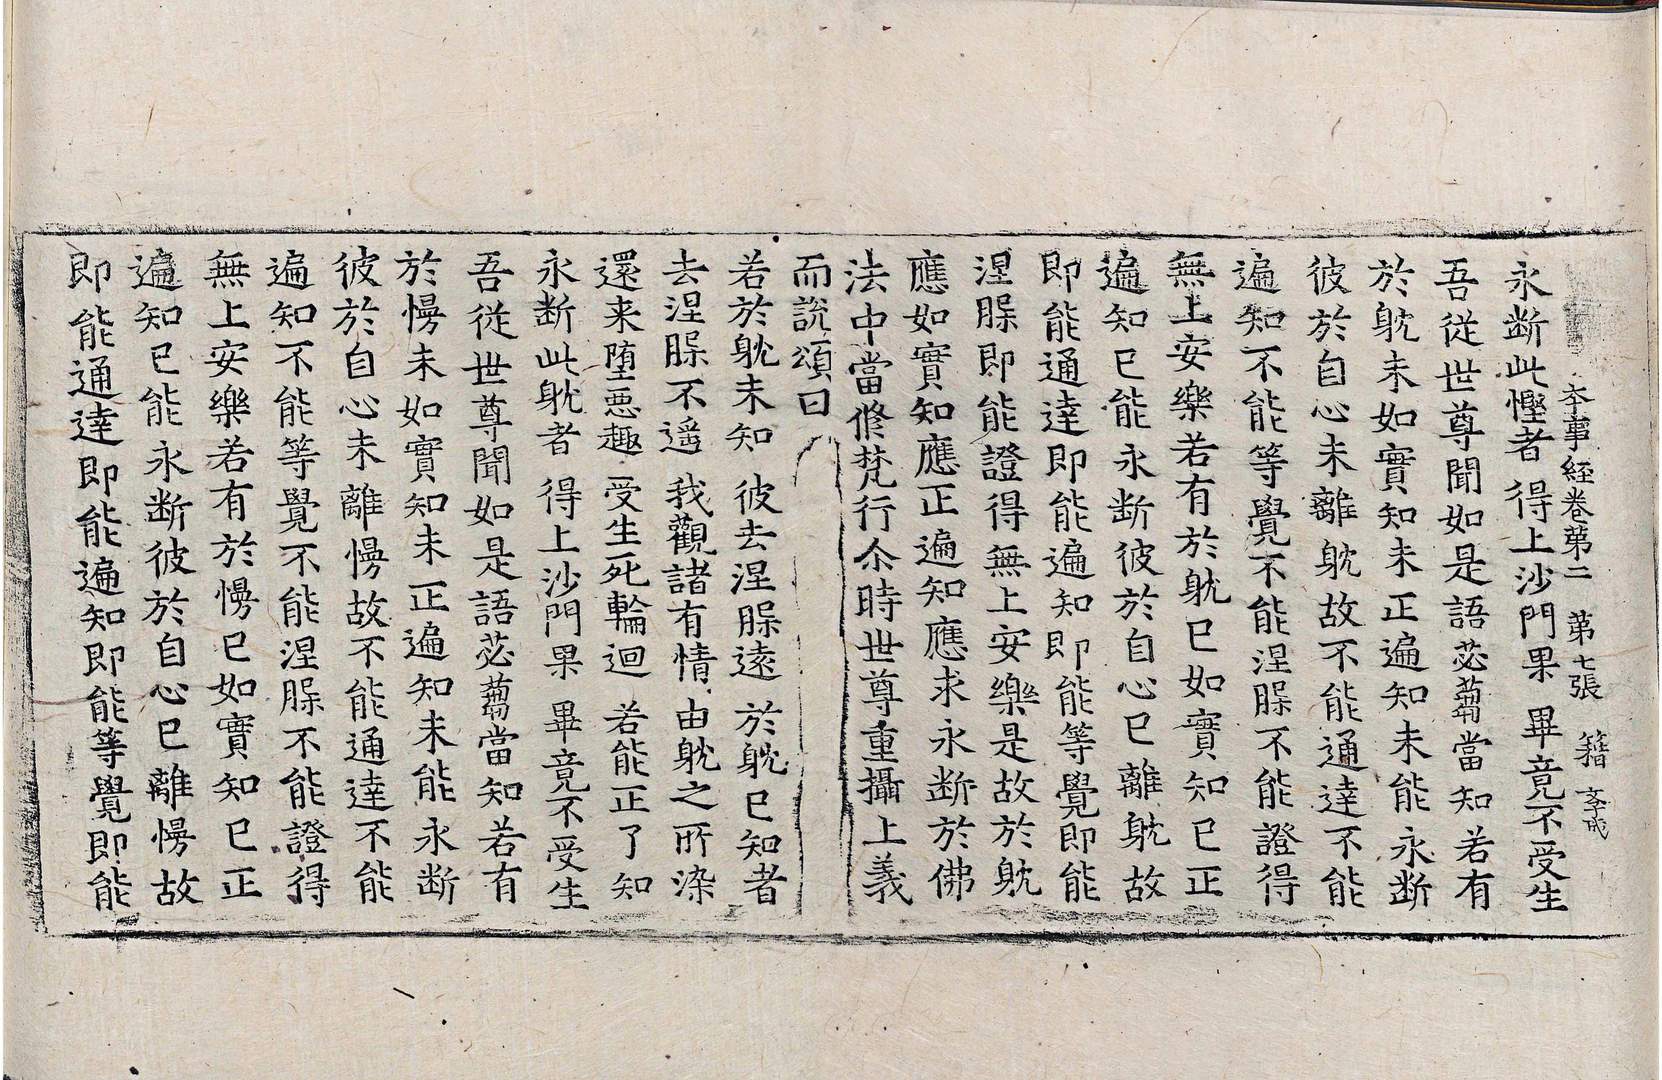 本事経卷第二 第七張 籍 文戒
永断此慳者 得上沙門果 畢竟不受生
吾従世尊聞如是語苾蒭當知若有
於躭未如實知未正遍知未能永断
彼於自心未離躭故不能通達不能
遍知不能等覺不能涅槃不能證得
無上安樂若有於躭已如實知已正
遍知已能永断彼於自心已離躭故
即能通達即能遍知即能等覺即能
涅槃即能證得無上安樂是故於躭
應如實知應正遍知應求永断於佛
法中當修梵行尒時世尊重攝上義
而說頌曰
若於躭未知 彼去涅槃遠 於躭已知者
去涅槃不遥 我觀諸有情 由躭之所染
還来墮惡趣 受生死輪迴 若能正了知
永断此躭者 得上沙門果 畢竟不受生
吾従世尊聞如是語苾蒭當知若有
於慢未如實知未正遍知未能永断
彼於自心未離慢故不能通達不能
遍知不能等覺不能涅槃不能證得
無上安樂若有於慢已如實知已正
遍知已能永断彼於自心已離慢故
即能通達即能遍知即能等覺即能